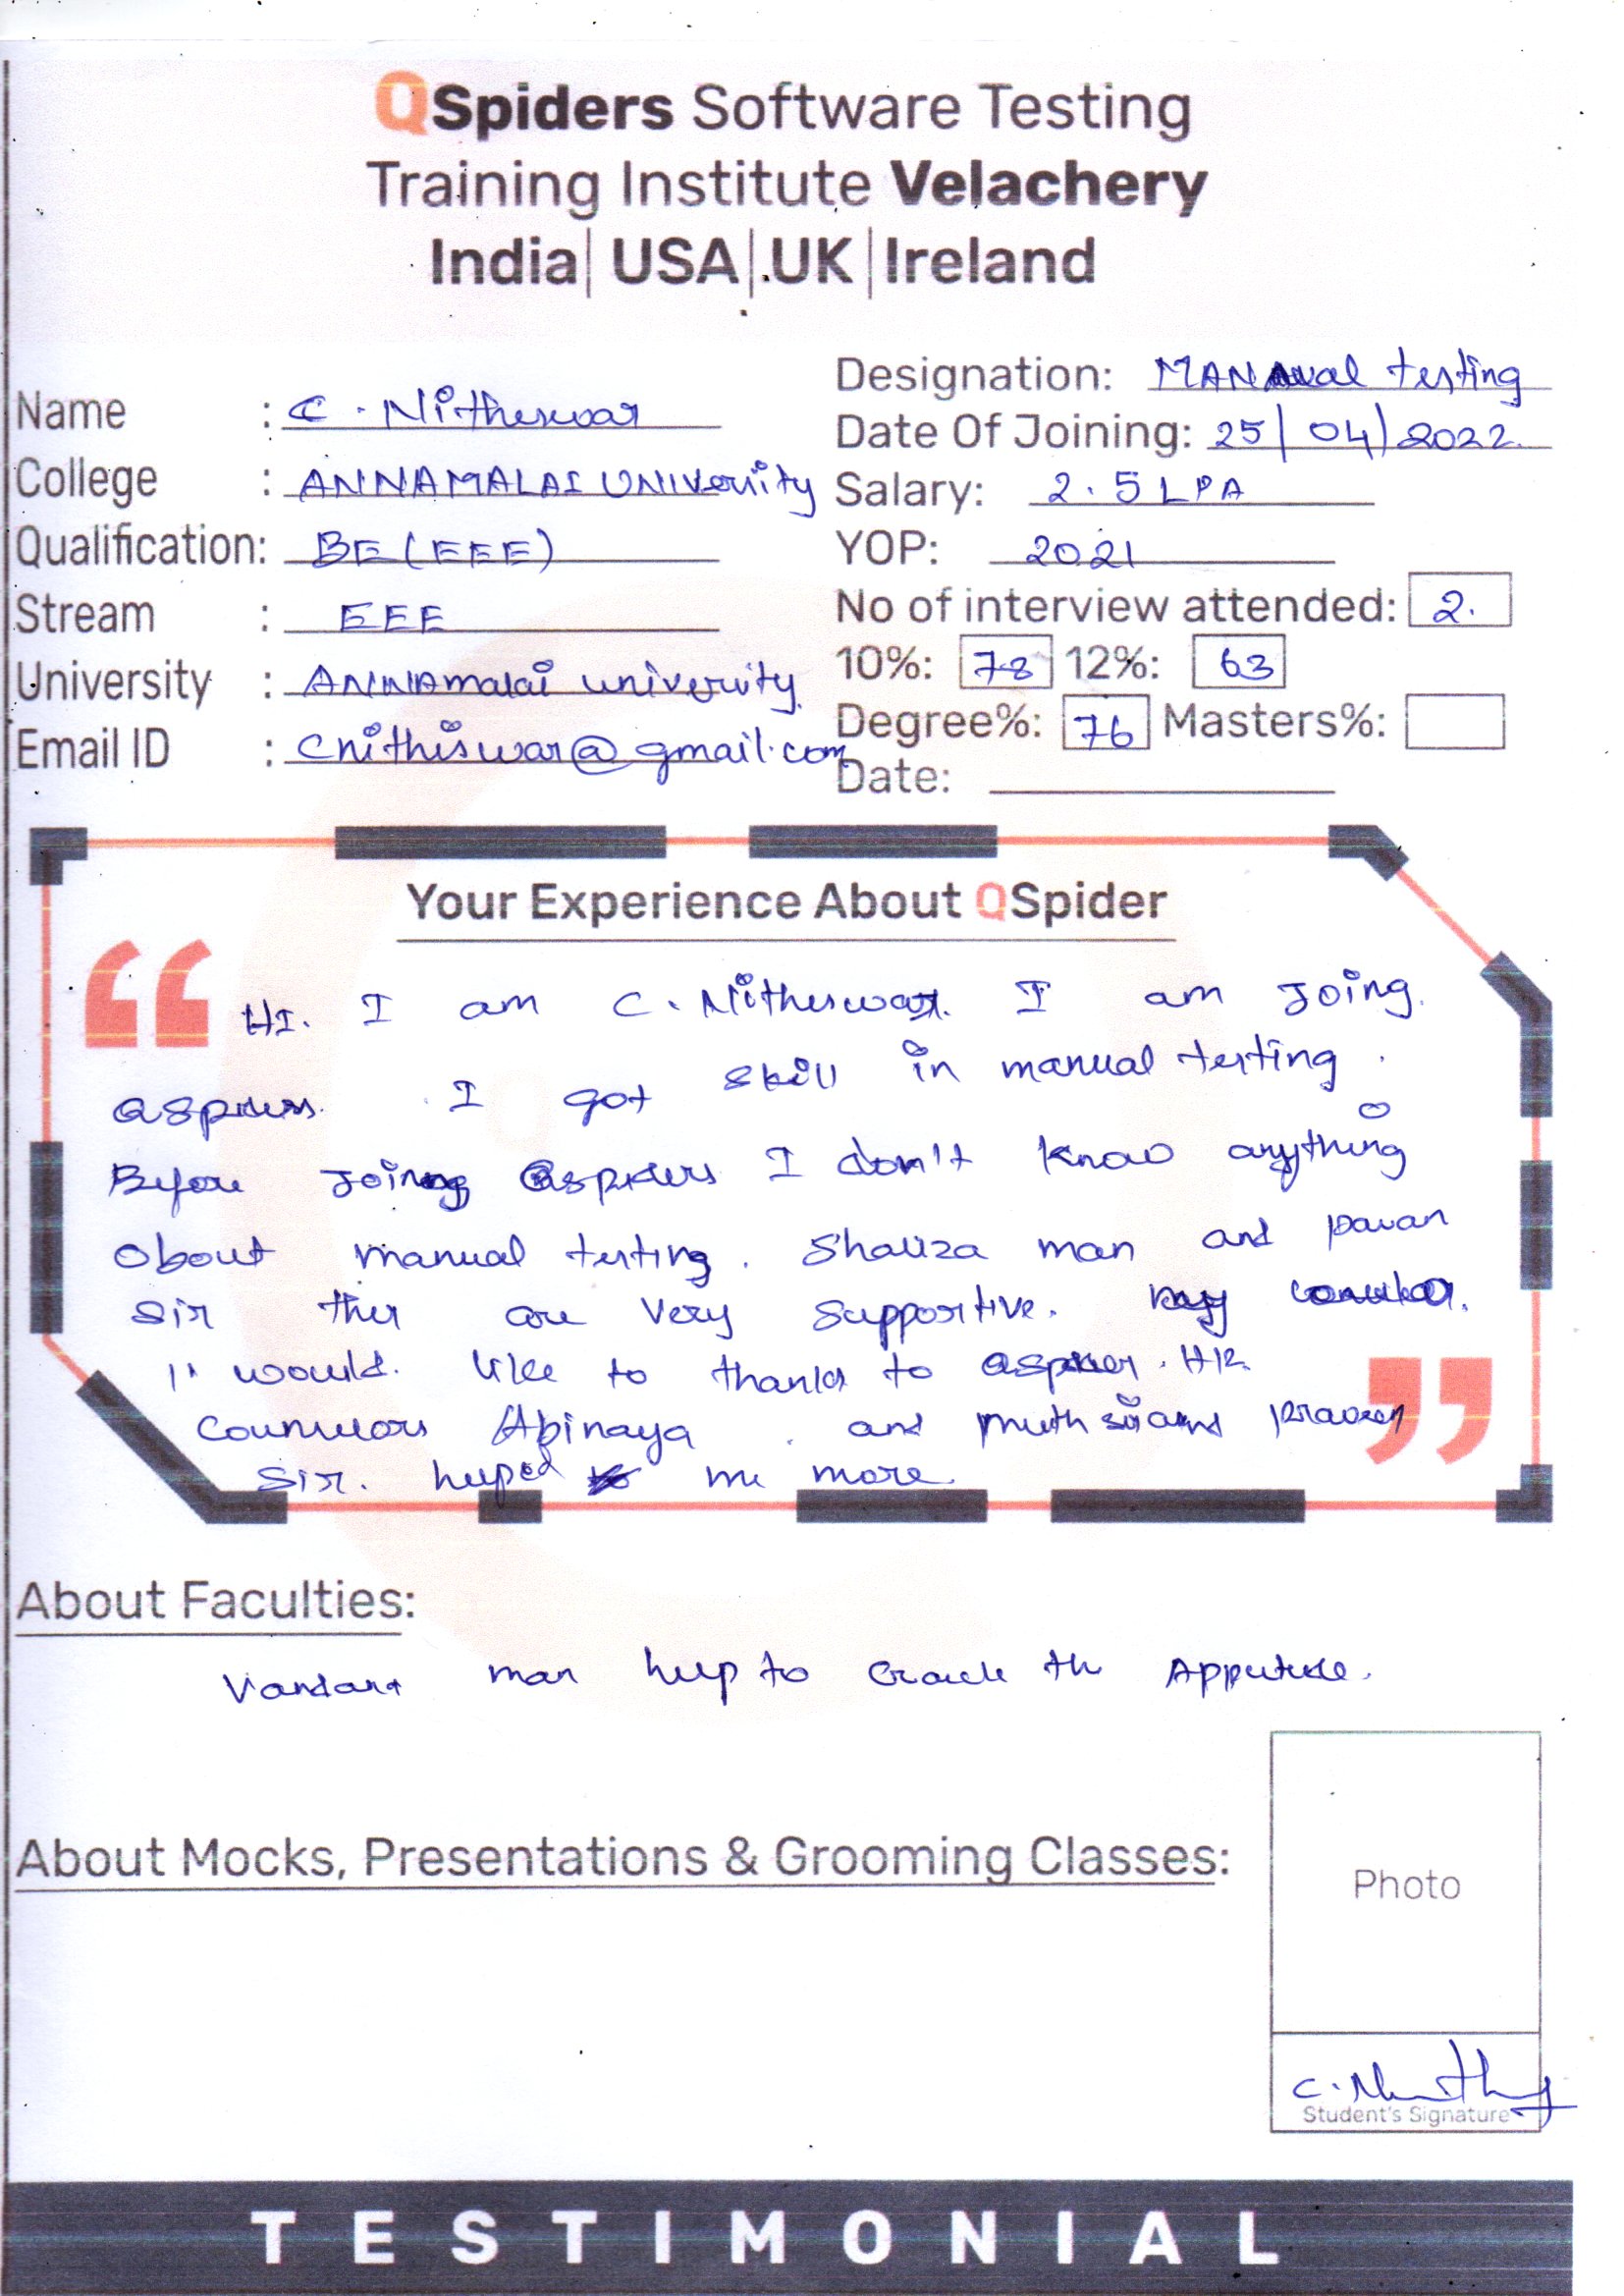 QSpiders Software Testing
Training Institute Velachery
India| USA| UK |Ireland
Name : C. Nitheswar
College : ANNAMALAI UNIVersity
Qualification: BE (EEE)
Stream : EEE
University : ANNAmalai university
Email ID : cnithiswar@gmail.com
Designation: MANual testing
Date Of Joining: 25/04/2022
Salary: 2.5 LPA
YOP: 2021
No of interview attended: 2.
10%: 78 12%: 63
Degree%: 76 Masters%:
Date:
Your Experience About QSpider
“ HI. I am C. Nitheswar. I am Joing
I got skill in manual testing.
Before Joining Qspiders I don't know anything
about manual testing. Shaliza mam and pavan
sir they are very supportive.
I would like to thanks to HR
Counselors Abinaya. and praveen
sir. helped me more. ”
About Faculties:
mam help to crack the
About Mocks, Presentations & Grooming Classes:
Photo
Student's Signature
TESTIMONIAL